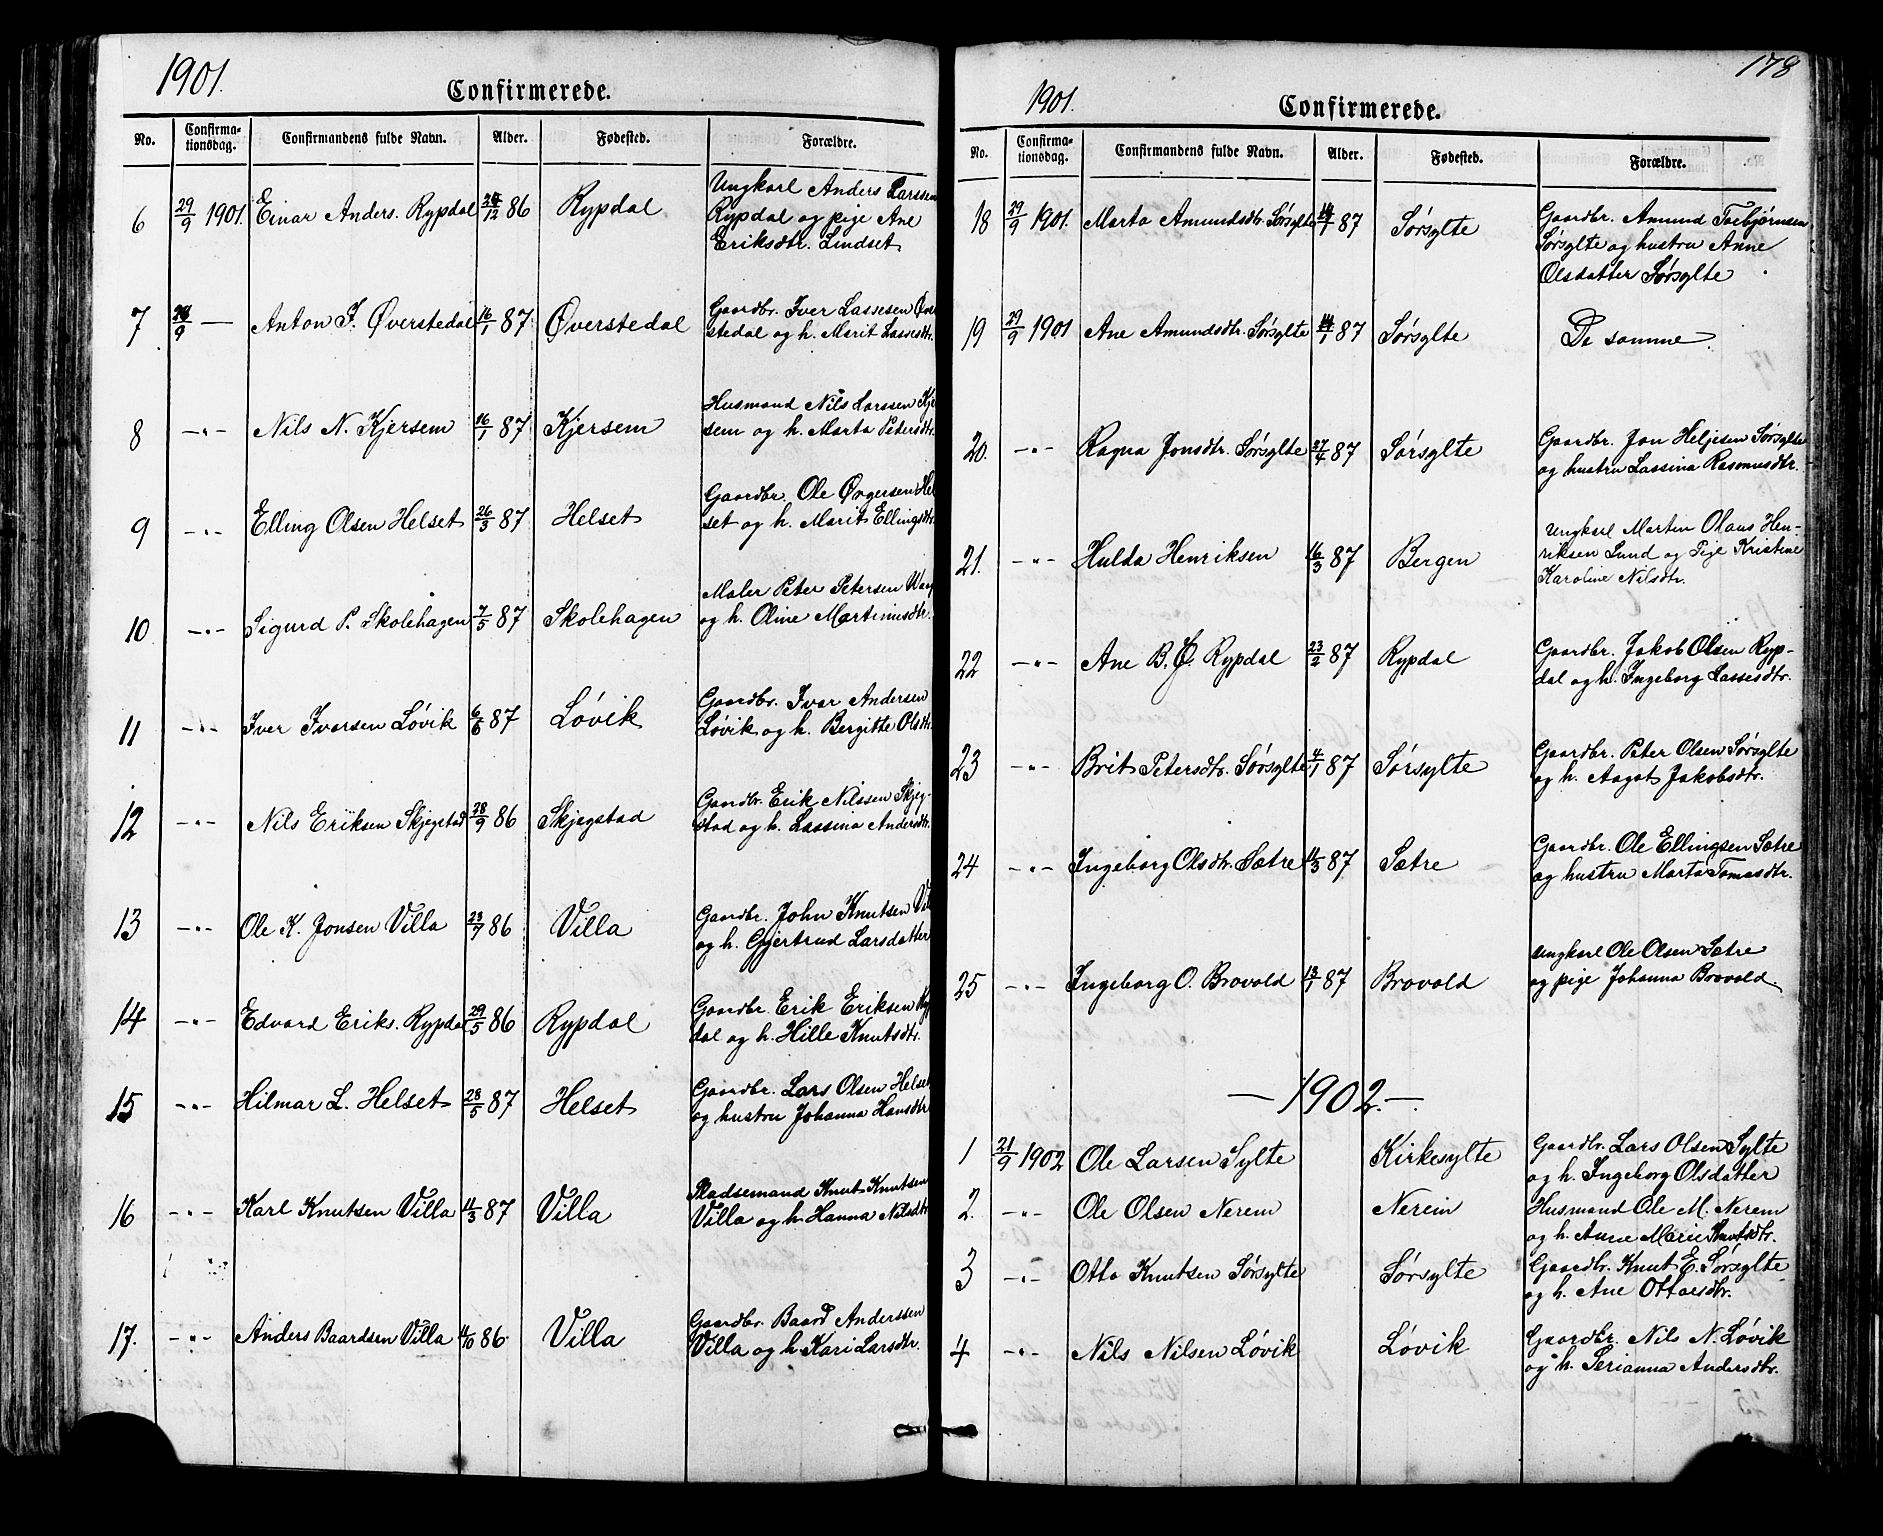 1901.
Confirmerede.
No. Confirmationsdag. Confirmandens fulde Navn. Alder. Fødested. Forældre.
6 29/9 1901. Einar Anders. Rypdal /12 86 Rypdal Ungkarl Anders Larssen
Rypdal og pige Ane
Eriksdtr. Lindset
7 /9 — Anton I. Øverstedal 16/1 87 Øverstedal Gaardbr. Iver Lassesen Øver
stedal og h. Marit Lassesdtr.
8 -"- Nils N. Kjersem 16/1 87 Kjersem Husmand Nils Larssen Kjer
sem og h. Marta Petersdtr.
9 -"- Elling Olsen Helset 26/3 87 Helset Gaardbr. Ole Hel
set og h. Marit Ellingsdtr.
10 -"- Sigurd P. Skolehagen 7/5 87 Skolehagen Maler Peter Petersen
og h. Oline Martinusdtr.
11 -"- Iver Ivarsen Løvik 6/6 87 Løvik Gaardbr. Ivar Andersen
Løvik og h. Bergitte Olsdtr.
12 -"- Nils Eriksen Skjegstad 28/9 86 Skjegstad Gaardbr. Erik Nilssen Skjeg-
stad og h. Lassina Andersdtr.
13 -"- Ole K. Jonsen Villa 23/7 86 Villa Gaardbr. John Knutsen
og h. Gjertrud Larsdatter
14 -"- Edvard Eriks. Rypdal 29/5 86 Rypdal Gaardbr. Erik Eriksen Ryp
dal og h. Hille Knutsdtr.
15 -"- Hilmar L. Helset 28/5 87 Helset Gaardbr. Lars Olsen Helset
og hustru Johanna Hansdtr
16 -"- Karl Knutsen Villa 11/3 87 Villa Pladsemand Knut Knutsen
Villa og h. Hanna Nilsdtr
17. -"- Anders Baardsen Villa 86. Villa Gaardbr. Baard Anderssen
Villa og h. Kari Larsdtr.
178
1901.
Confirmerede.
No. Confirmationsdag. Confirmandens fulde Navn. Alder. Fødested. Forældre.
18 29/9 1901. Marta Amundsdtr. Sørsylte /1 87 Sørsylte Gaardbr. Amund Torbjørnsen
Sørsylte og hustru Anne
Olsdatter Sørsylte
19 29/9 1901 Ane Amundsdtr. Sørsylte /1 87 Sørsylte De samme.
20. -"- Ragna Jonsdtr. Sørsylte 27/4 87 Sørsylte Gaardbr. Jon Heljesen Sørsylte
og hustru Lassina Rasmusdtr.
21. -"- Hulda Henriksen 16/3 87 Bergen Ungkarl Martin Olaus Hen-
riksen Lund og Pige Kristine
Karoline Nilsdtr.
22 -"- Ane B. Rypdal 23/2 87 Rypdal Gaardbr. Jakob Olsen Ryp-
dal og h. Ingeborg Lassesdtr.
23 -"- Brit Petersdtr. Sørsylte 4/1 87 Sørsylte Gaardbr. Peter Olsen Sørsylte
og h. Aagot Jakobsdtr.
24 -"- Ingeborg Olsdtr. Sætre 11/3 87 Sætre Gaardbr. Ole Ellingsen Sætre
og hustru Marta Tomasdtr.
25 -"- Ingeborg O. Brovold 13/1 87 Brovold Ungkarl Ole Olsen Sætre
og pige Johanna Brovold.
— 1902. —
1 21/9 1902 Ole Larsen Sylte Kirkesylte Gaardbr. Lars Olsen Sylte
og h. Ingeborg Olsdatter
2. -"- Ole Olsen Nerem Nerem Husmand Ole M. Nerem
og h. Anne Marie Knutsdtr.
3 -"- Otto Knutsen Sørsylte Sørsylte Gaardbr. Knut E. Sørsylte
og h. Ane Ottoesdtr.
4 -"- Nils Nilsen Løvik Løvik Gaardbr. Nils N. Løvik
og h. Serianna Andersdtr.